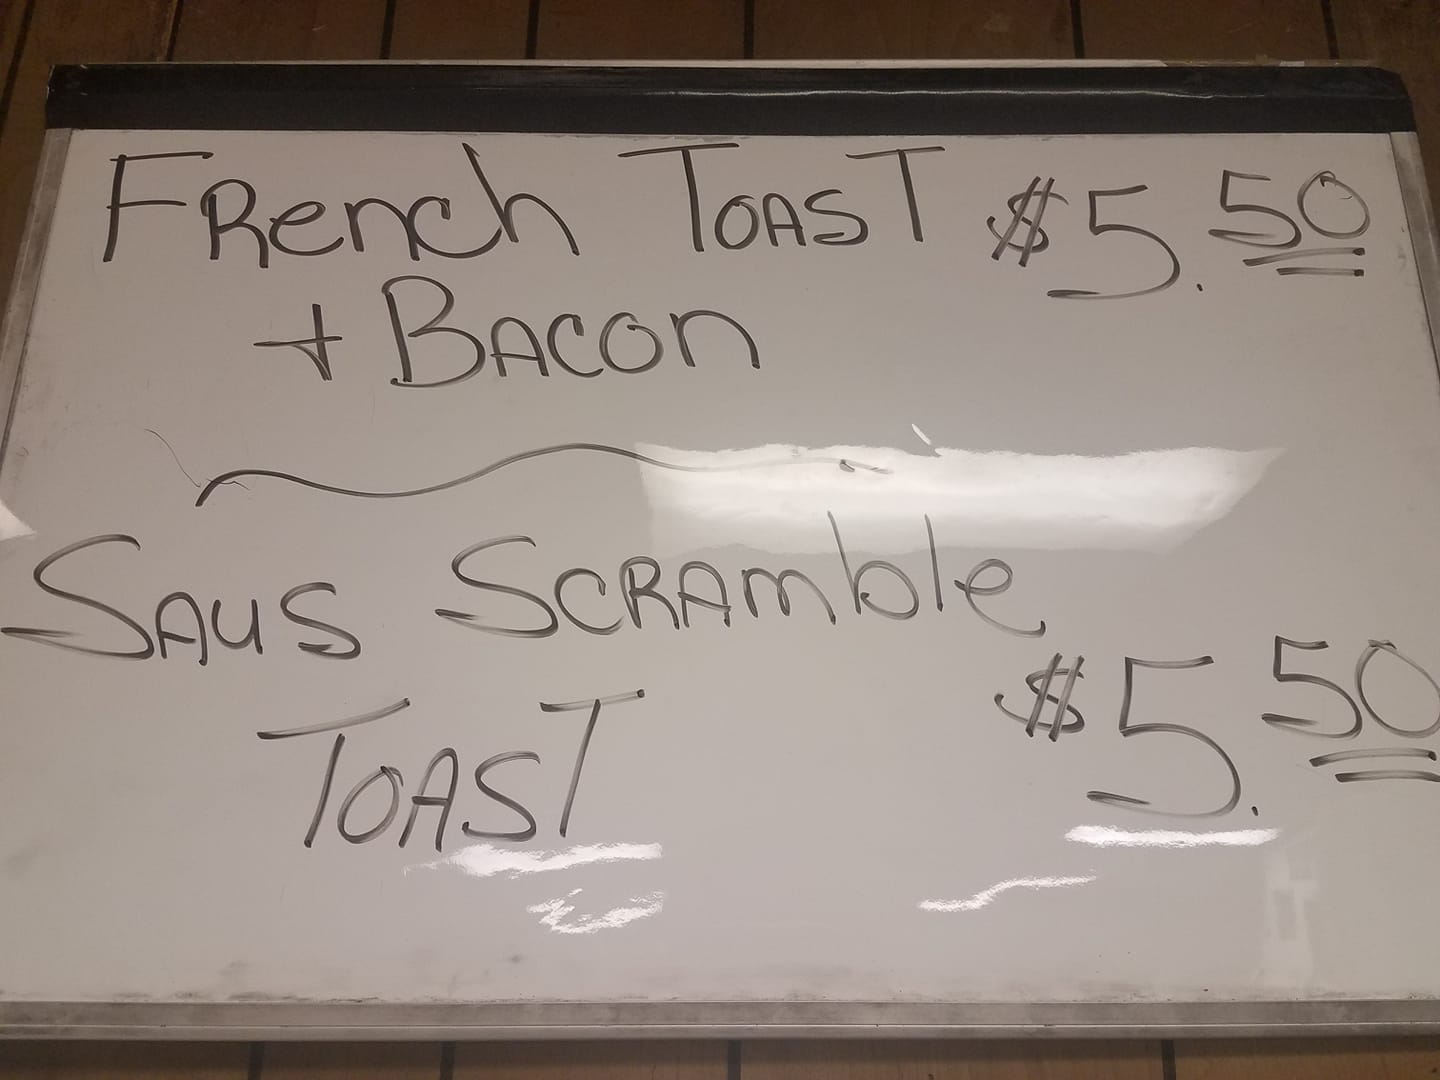 French Toast $5.50
+ Bacon
Saus Scramble
Toast $5.50